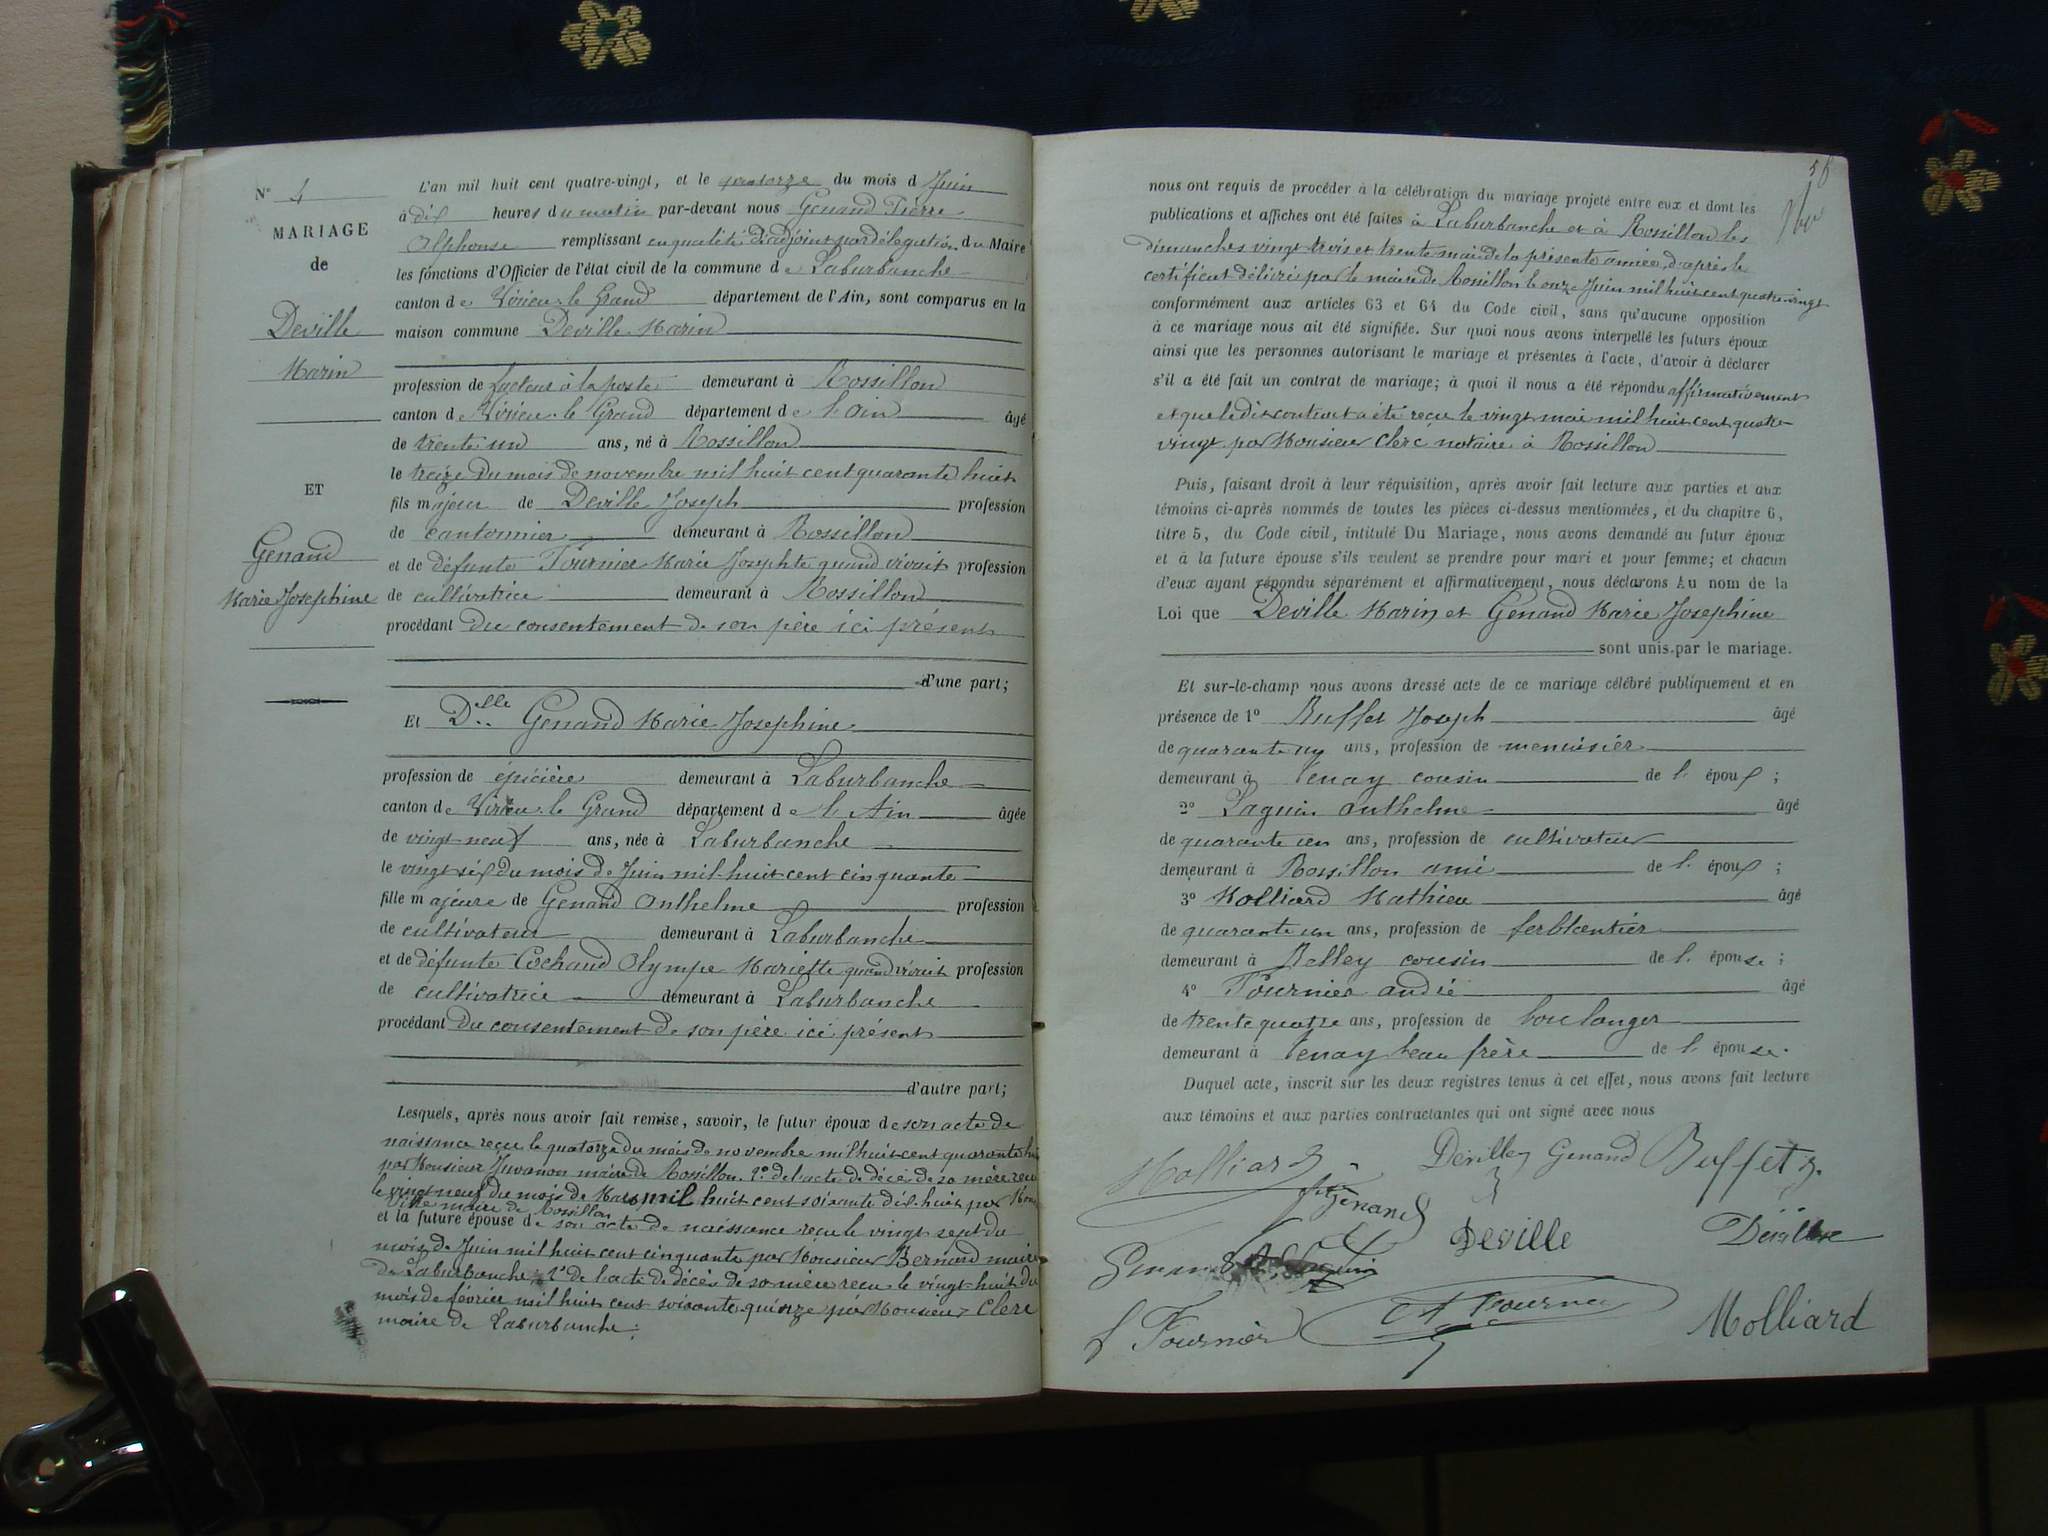 N° 4
MARIAGE
de
Deville
Marin
ET
Genand
Marie Josephine
L'an mil huit cent quatre-vingt, et le quatorze du mois d Juin
à dix heures du matin par-devant nous Genand Pierre
Alphonse remplissant en qualité d'adjoint par délegation du Maire
les fonctions d'Officier de l'état civil de la commune de Laburbanche
canton de Virieu-le Grand département de l'Ain, sont comparus en la
maison commune Deville Marin
profession de facteur à la poste demeurant à Rossillon
canton de Virieu-le Grand département de l'ain âgé
de trente un ans, né à Rossillon
le treize du mois de novembre mil huit cent quarante huit
fils majeur de Deville Joseph profession
de cantonnier demeurant à Rossillon
et de défunte Fournier Marie Josephte quand vivait profession
de cultivatrice demeurant à Rossillon
procédant du consentement de son père ici présent
d'une part;
Et Delle Genand Marie Josephine
profession de épicière demeurant à Laburbanche
canton de Virieu-le Grand département de l'Ain âgée
de vingt neuf ans, née à Laburbanche
le vingt six du mois de Juin mil huit cent cinquante
fille majeure de Genand Anthelme profession
de cultivateur demeurant à Laburbanche
et de défunte Cochand Olympe Mariette quand vivait profession
de cultivatrice demeurant à Laburbanche
procédant du consentement de son père ici présent
d'autre part;
Lesquels, après nous avoir fait remise, savoir, le futur époux de son acte de
naissance reçu le quatorze du mois de novembre mil huit cent quarante huit
par Monsieur Juvanon maire de Rossillon. 2° de l'acte de décès de sa mère reçu
le vingt neuf du mois de Mars mil huit cent soixante dix-huit par
maire de Rossillon
et la future épouse de son acte de naissance reçu le vingt sept du
mois de Juin mil huit cent cinquante par Monsieur Bernard maire
de Laburbanche, 2° de l'acte de décès de sa mère reçu le vingt huit du
mois de février mil huit cent soixante quinze par Monsieur Clerc
maire de Laburbanche:
56
nous ont requis de procéder à la célébration du mariage projeté entre eux et dont les
publications et affiches ont été faites à Laburbanche et à Rossillon les
dimanches vingt trois et trente mai de la présente année, d'après le
certificat délivré par le maire de Rossillon le onze Juin mil huit cent quatre-vingt
conformément aux articles 63 et 64 du Code civil, sans qu'aucune opposition
à ce mariage nous ait été signifiée. Sur quoi nous avons interpellé les futurs époux
ainsi que les personnes autorisant le mariage et présentes à l'acte, d'avoir à déclarer
s'il a été fait un contrat de mariage; à quoi il nous a été répondu affirmativement
et que le dit contrat a été reçu le vingt mai mil huit cent quatre-
vingt par Monsieur Clerc notaire à Rossillon
Puis, faisant droit à leur réquisition, après avoir fait lecture aux parties et aux
témoins ci-après nommés de toutes les pièces ci-dessus mentionnées, et du chapitre 6,
titre 5, du Code civil, intitulé Du Mariage, nous avons demandé au futur époux
et à la future épouse s'ils veulent se prendre pour mari et pour femme; et chacun
d'eux ayant répondu séparément et affirmativement, nous déclarons Au nom de la
Loi que Deville Marin et Genand Marie Josephine
sont unis par le mariage.
Et sur-le-champ nous avons dressé acte de ce mariage célébré publiquement et en
présence de 1° Buffet Joseph âgé
de quarante un ans, profession de menuisier
demeurant à Tenay cousin de l'époux;
2° Laguin Anthelme âgé
de quarante un ans, profession de cultivateur
demeurant à Rossillon ami de l'époux;
3° Molliard Mathieu âgé
de quarante un ans, profession de ferblantier
demeurant à Belley cousin de l'épouse;
4° Fournier andré âgé
de trente quatre ans, profession de boulanger
demeurant à Tenay beau frère de l'épouse.
Duquel acte, inscrit sur les deux registres tenus à cet effet, nous avons fait lecture
aux témoins et aux parties contractantes qui ont signé avec nous
Molliard Deville Genand Buffet
Genand
Deville Deville
Genand
Fournier Fournier Molliard